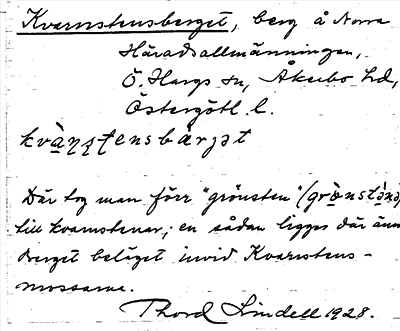 Kvarnstensberget, berg å Norra
Häradsallmänningen,
Ö. Hargs sn, Åkerbo hd,
Östergötl. l.
kvànstensbärjet
Där tog man förr "grönsten" (grònstèna)
till kvarnstenar; en sådan ligger där ännu
Berget beläget invid Kvarnstens-
mossarne.
Thord Lindell 1928.